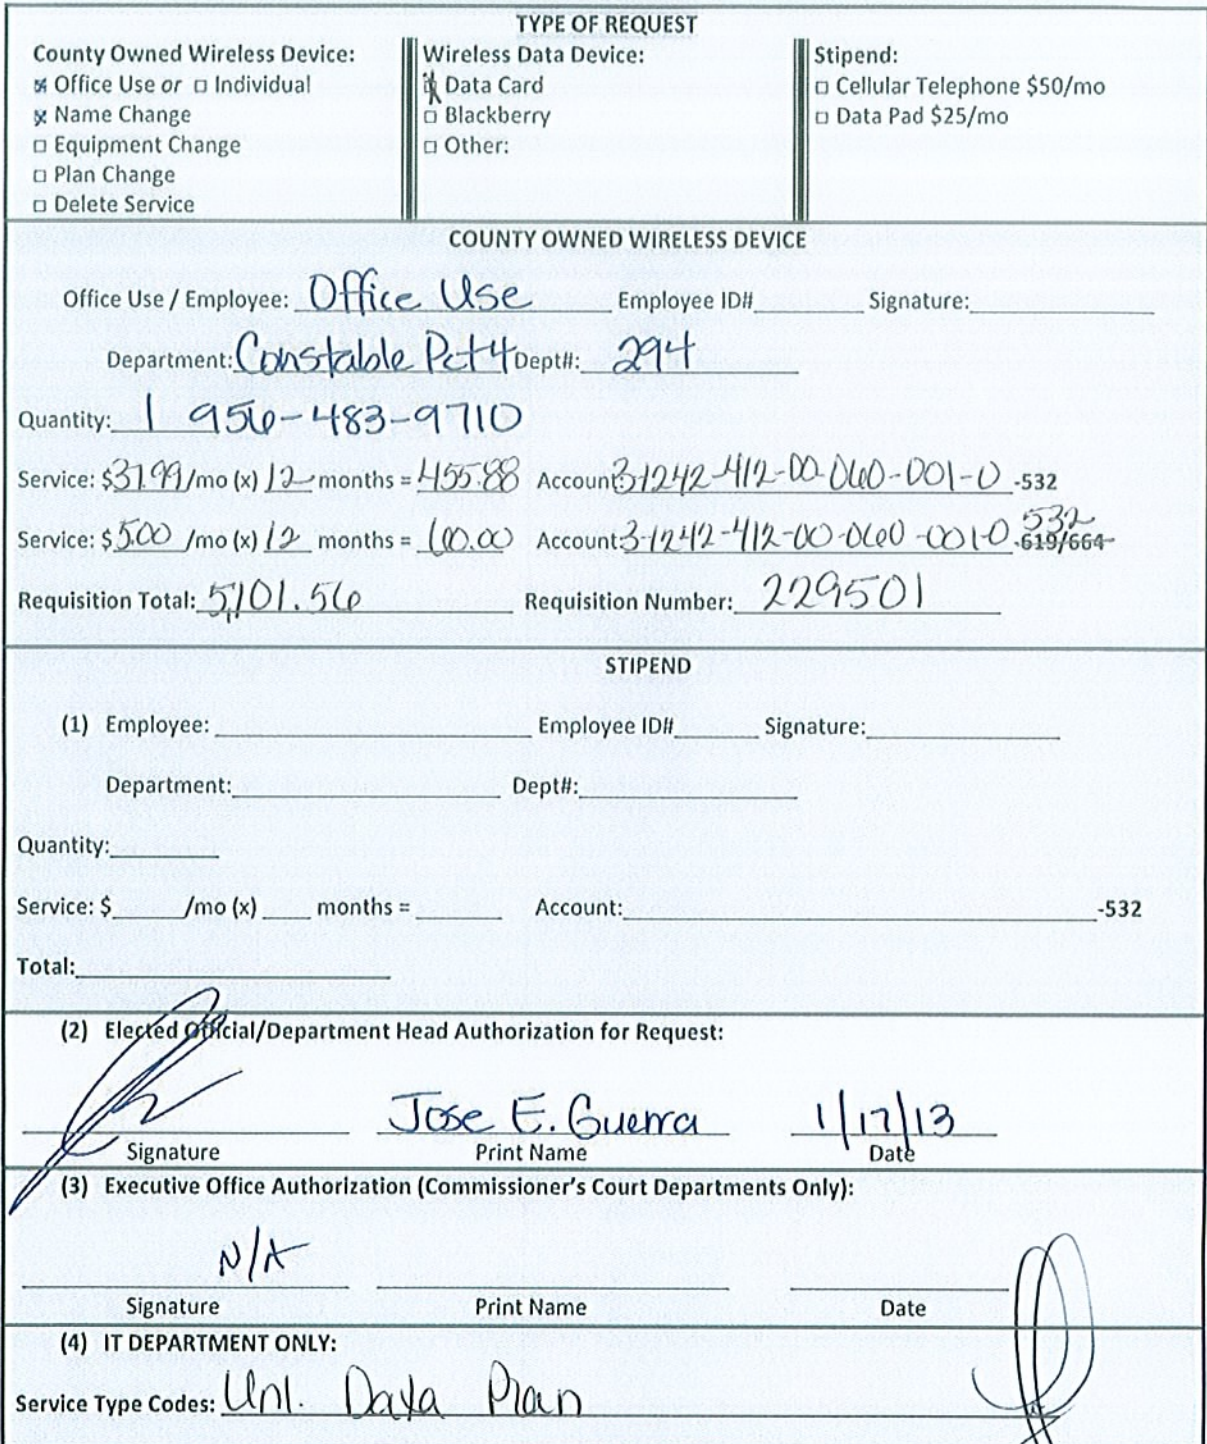 TYPE OF REQUEST
County Owned Wireless Device: Wireless Data Device: Stipend:
☒ Office Use or □ Individual ☒ Data Card □ Cellular Telephone $50/mo
☒ Name Change □ Blackberry □ Data Pad $25/mo
□ Equipment Change □ Other:
□ Plan Change
□ Delete Service
COUNTY OWNED WIRELESS DEVICE
Office Use / Employee: Office Use Employee ID# Signature:
Department: Constable Pct 4 Dept#: 294
Quantity: 1 956-483-9710
Service: $37.99/mo (x) 12 months = 455.88 Account: 3-1242-412-00-060-001-0 -532
532
Service: $5.00 /mo (x) 12 months = 60.00 Account: 3-1242-412-00-060-001-0 -619/664
Requisition Total: 5,101.56 Requisition Number: 229501
STIPEND
(1) Employee: Employee ID# Signature:
Department: Dept#:
Quantity:
Service: $ /mo (x) months = Account: -532
Total:
(2) Elected Official/Department Head Authorization for Request:
Jose E. Guerra 1/17/13
Signature Print Name Date
(3) Executive Office Authorization (Commissioner's Court Departments Only):
N/A
Signature Print Name Date
(4) IT DEPARTMENT ONLY:
Service Type Codes: Unl. Data Plan